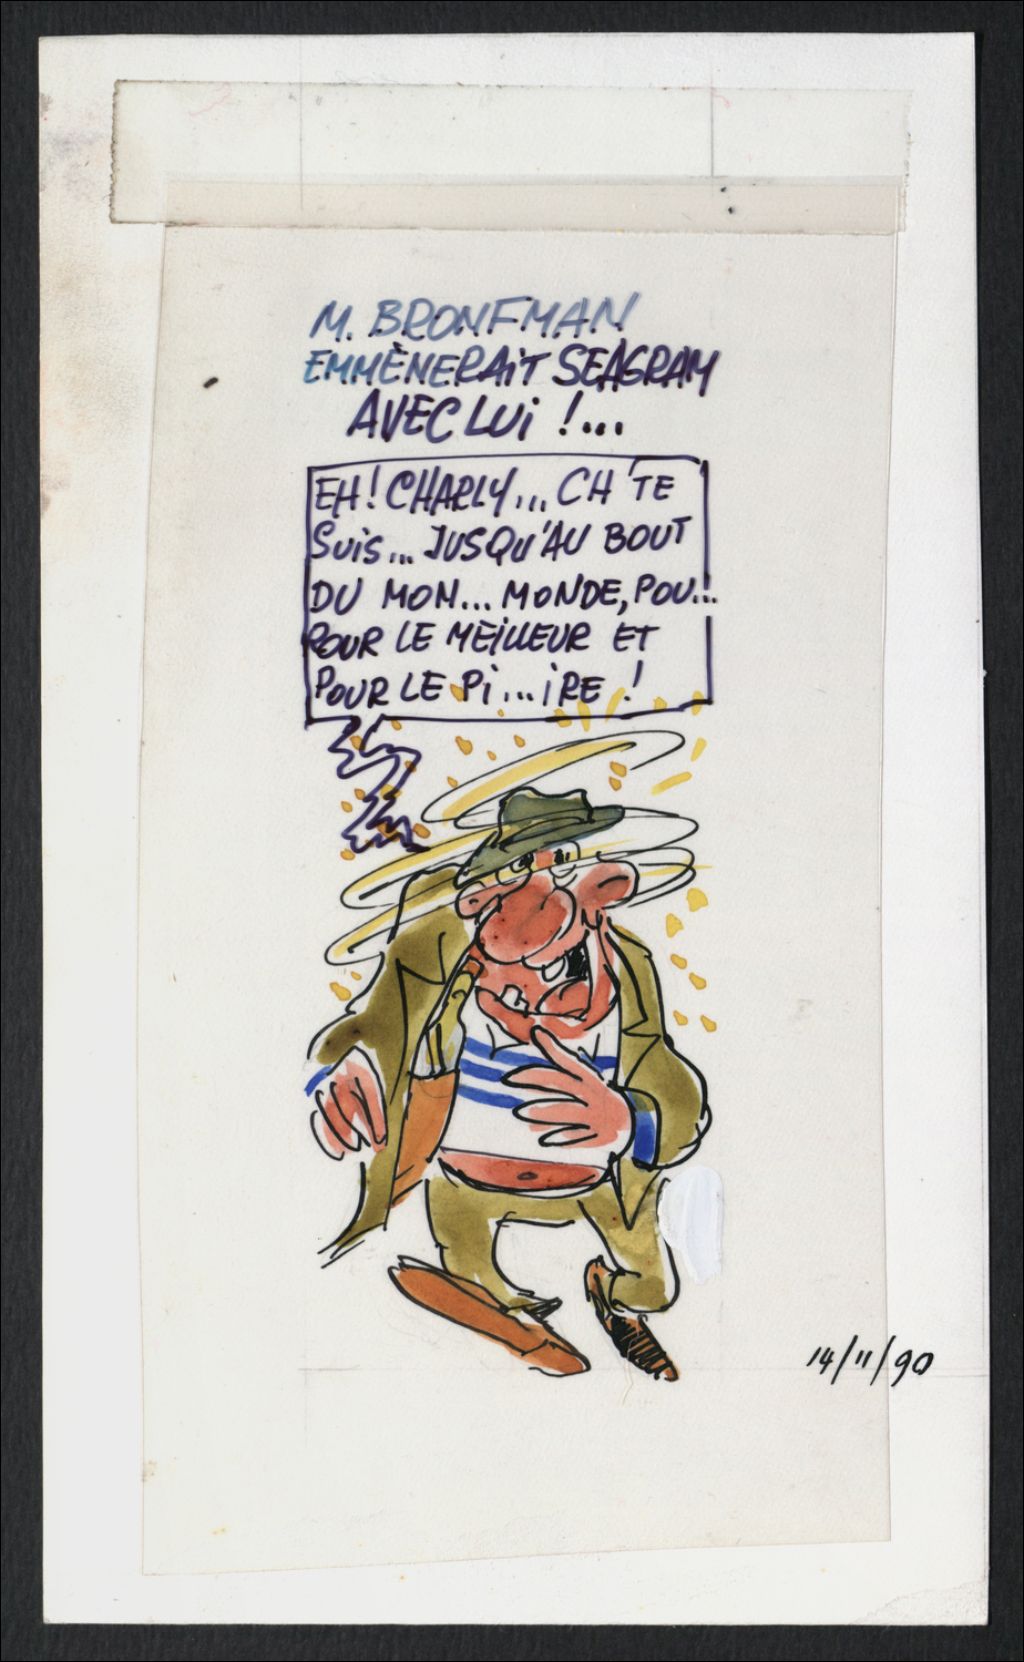 M. BRONFMAN
EMMÈNERAIT SEAGRAM
AVEC LUI !...
EH! CHARLY... CH'TE
SUIS... JUSQU'AU BOUT
DU MON... MONDE, POU...
POUR LE MEILLEUR ET
POUR LE PI...IRE !
14/11/90